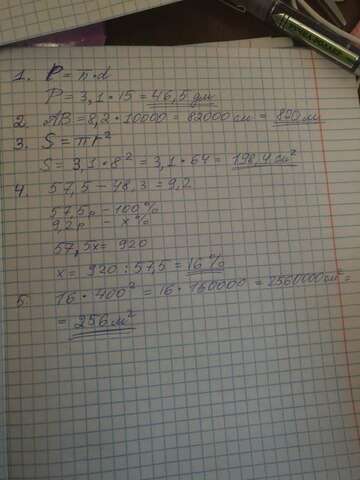 1. P = π·d
P = 3,1 · 15 = 46,5 дм
2. AB = 8,2 · 10000 = 82000 см = 820 м
3. S = πr²
S = 3,1 · 8² = 3,1 · 64 = 198,4 см²
4. 57,5 - 48,3 = 9,2
57,5 р - 100%
9,2 р - x%
57,5x = 920
x = 920 : 57,5 = 16%
5. 16 · 400² = 16 · 160000 = 2560000 см² =
= 256 м²